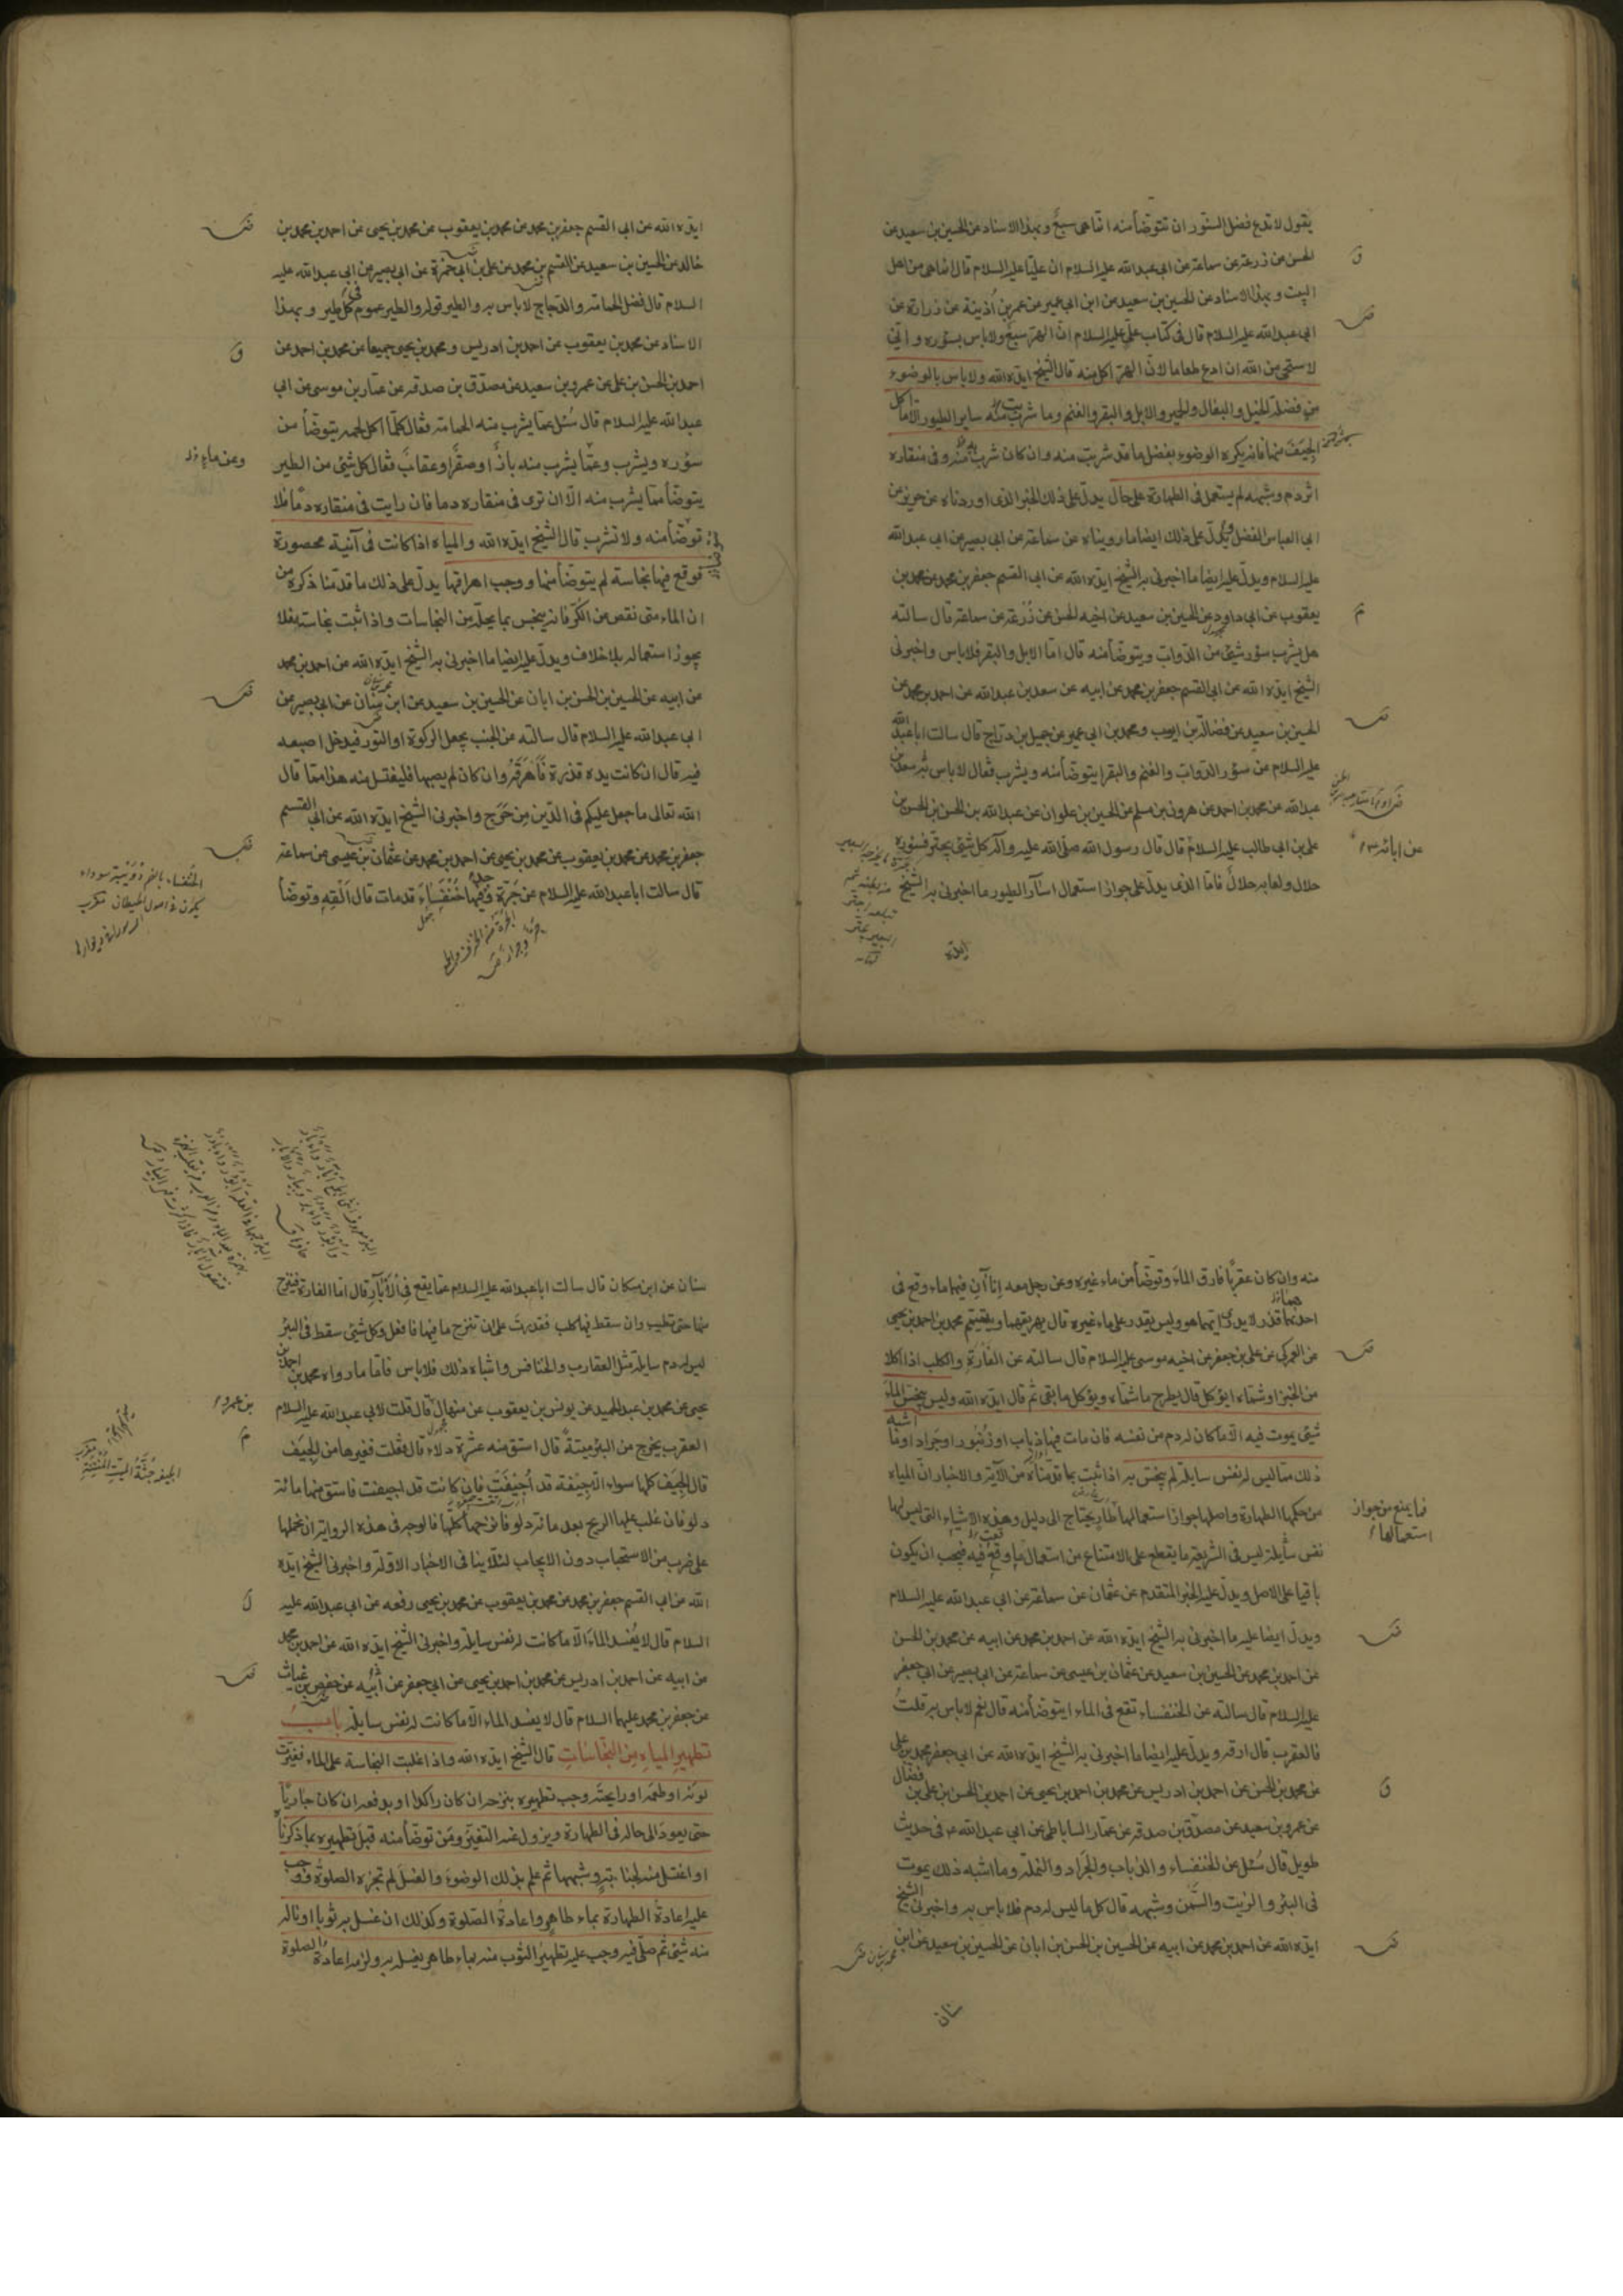 يقول لا تدع فضل السنور ان تتوضأ منه انما هى سبع وبهذا الاسناد عن الحسين بن سعيد عن
الحسن عن زرعة عن سماعة عن ابى عبد الله عليه السلام ان عليا عليه السلام قال انما هى من اهل
البيت وبهذا الاسناد عن الحسين بن سعيد عن ابن ابى عمير عن عمر بن أذينة عن زرارة عن
ابى عبد الله عليه السلام قال فى كتاب على عليه السلام ان الهر سبع ولا باس بسؤره وانى
لاستحى من الله ان ادع طعاما لان الهر اكل منه قال الشيخ ايده الله ولا باس بالوضوء
من فضلة الخيل والبغال والحمير والابل والبقر والغنم وما شربت منه ساير الطيور الا ما اكل
الجيف منها فانه يكره الوضوء بفضل ما قد شربت منه وان كان شرب منه وفى منقاره
اثر دم وشبهه لم يستعمل فى الطهارة على حال يدل على ذلك الخبر الذى اوردناه عن حريز عن
ابى العباس الفضل ويدل على ذلك ايضا ما رويناه عن سماعة عن ابى بصير عن ابى عبد الله
عليه السلام ويدل عليه ايضا ما اخبرنى به الشيخ ايده الله عن ابى القسم جعفر بن محمد عن محمد بن
يعقوب عن ابى داود عن الحسين بن سعيد عن اخيه الحسن عن زرعة عن سماعة قال سالته
هل يشرب سؤر شىء من الدواب ويتوضأ منه قال اما الابل والبقر فلا باس واخبرنى
الشيخ ايده الله عن ابى القسم جعفر بن محمد عن ابيه عن سعد بن عبد الله عن احمد بن محمد عن
الحسين بن سعيد عن فضالة بن ايوب ومحمد بن ابى عمير عن جميل بن دراج قال سالت ابا عبد الله
عليه السلام عن سؤر الدواب والغنم والبقر ايتوضأ منه ويشرب فقال لا باس به سعد بن
عبد الله عن محمد بن احمد عن هرون بن مسلم عن الحسين بن علوان عن عبد الله بن الحسن بن الحسن بن
على بن ابى طالب عليه السلام قال قال رسول الله صلى الله عليه واله كل شىء يجتر فسؤره
عن ابائه
حلال ولعابه حلال فاما الذى يدل على جواز استعمال اسآر الطيور ما اخبرنى به الشيخ
ايده
ايده الله عن ابى القسم جعفر بن محمد عن محمد بن يعقوب عن محمد بن يحيى عن احمد بن محمد بن
خالد عن الحسين بن سعيد عن القسم بن محمد عن على بن ابى حمزة عن ابى بصير عن ابى عبد الله عليه
السلام قال فضل الحمامة والدجاج لا باس به والطير قوله والطير عموم فى كل طير وبهذا
الاسناد عن محمد بن يعقوب عن احمد بن ادريس ومحمد بن يحيى جميعا عن محمد بن احمد عن
احمد بن الحسن بن على عن عمرو بن سعيد عن مصدق بن صدقه عن عمار بن موسى عن ابى
عبد الله عليه السلام قال سئل عما يشرب منه الحمامة فقال كلما اكل لحمه يتوضأ من
سؤره ويشرب وعما يشرب منه باز او صقر او عقاب فقال كل شىء من الطير
وعن ماء
يتوضأ مما يشرب منه الا ان ترى فى منقاره دما فان رايت فى منقاره دما فلا
توضأ منه ولا تشرب قال الشيخ ايده الله والمياه اذا كانت فى آنية محصورة
فوقع فيها نجاسة لم يتوضأ منها ووجب اهراقها يدل على ذلك ما قدمنا ذكره من
ان الماء متى نقص من الكر فانه ينجس بما يحله من النجاسات واذا ثبت نجاسته فلا
يجوز استعماله بلا خلاف ويدل عليه ايضا ما اخبرنى به الشيخ ايده الله عن احمد بن محمد
عن ابيه عن الحسين بن الحسن بن ابان عن الحسين بن سعيد عن ابن سنان عن ابى بصير عن
ابى عبد الله عليه السلام قال سالته عن الجنب يجعل الركوة او التور فيدخل اصبعه
فيه قال ان كانت يده قذرة فأهرقه وان كان لم يصبها فليغتسل منه هذا مما قال
الله تعالى ما جعل عليكم فى الدين من حرج واخبرنى الشيخ ايده الله عن ابى القسم
جعفر بن محمد عن محمد بن يعقوب عن محمد بن يحيى عن احمد بن محمد عن عثمان بن عيسى عن سماعة
قال سالت ابا عبد الله عليه السلام عن جرة وجد فيها خنفساء قد مات قال القه وتوضأ
الخنفساء بالضم دويبة سوداء
منه وان كان عقربا فارق الماء وتوضأ من ماء غيره وعن رجل معه اناآن فيهما ماء وقع فى
احدهما قذر لا يدرى ايهما هو وليس يقدر على ماء غيره قال يهريقهما ويتيمم محمد بن احمد بن يحيى
عن العمركى عن على بن جعفر عن اخيه موسى عليه السلام قال سالته عن الفارة والكلب اذا اكلا
من الخبز او شماه ايؤكل قال يطرح ما شماه ويؤكل ما بقى ثم قال ايده الله وليس ينجس الماء
شىء يموت فيه الا ما كان له دم من نفسه فان مات فيها ذباب او زنبور او جراد او ما اشبه
ذلك مما ليس له نفس سايلة لم ينجس به اذا ثبت بما قدمناه من الآية والاخبار ان المياه
من حكمها الطهارة واصلها جواز استعمالها طار يحتاج الى دليل وهذه الاشياء التى ليس لها
فما يمنع من جواز
استعمالها
نفس سايلة ليس فى الشريعة ما يقطع على الامتناع من استعمال ما وقع فيه فيجب ان يكون
باقيا على الاصل ويدل عليه الخبر المتقدم عن عثمان عن سماعة عن ابى عبد الله عليه السلام
ويدل ايضا عليه ما اخبرنى به الشيخ ايده الله عن احمد بن محمد عن ابيه عن محمد بن الحسن
عن احمد بن محمد عن الحسين بن سعيد عن عثمان بن عيسى عن سماعة عن ابى بصير عن ابى جعفر
عليه السلام قال سالته عن الخنفساء تقع فى الماء ايتوضأ منه قال نعم لا باس به قلت
فالعقرب قال ارقه ويدل عليه ايضا ما اخبرنى به الشيخ ايده الله عن ابى جعفر محمد بن على
عن محمد بن الحسن عن احمد بن ادريس عن محمد بن احمد بن يحيى عن احمد بن الحسن بن على بن فضال
عن عمرو بن سعيد عن مصدق بن صدقه عن عمار الساباطى عن ابى عبد الله ع فى حديث
طويل قال سئل عن الخنفساء والذباب والجراد والنملة وما اشبه ذلك يموت
فى البئر والزيت والسمن وشبهه قال كل ما ليس له دم فلا باس به واخبرنى الشيخ
ايده الله عن احمد بن محمد عن ابيه عن الحسين بن الحسن بن ابان عن الحسين بن سعيد عن ابن
سنان
سنان عن ابن مسكان قال سالت ابا عبد الله عليه السلام عما يقع فى الآبار قال اما الفارة فينزح
منها حتى تطيب وان سقط فيها كلب فقدرت على ان تنزح ما فيها فافعل وكل شىء سقط فى البئر
ليس له دم سايلة مثل العقارب والخنافس واشباه ذلك فلا باس فاما ما رواه محمد بن احمد بن
يحيى عن محمد بن عبد الحميد عن يونس بن يعقوب عن منهال قال قلت لابى عبد الله عليه السلام
بن عمرو
العقرب يخرج من البئر ميتة قال استق منه عشرة دلاء قال فقلت فغيرها من الجيف
قال الجيف كلها سواء الا جيفة قد أجيفت فان كانت قد اجيفت فاستق منها مائة
دلو فان غلب عليها الريح بعد مائة دلو فانزحها كلها فالوجه فى هذه الرواية ان نحملها
على ضرب من الاستحباب دون الايجاب لئلا ينافى الاخبار الاولة واخبرنى الشيخ ايده
الله عن ابى القسم جعفر بن محمد عن محمد بن يعقوب عن محمد بن يحيى رفعه عن ابى عبد الله عليه
السلام قال لا يفسد الماء الا ما كانت له نفس سايلة واخبرنى الشيخ ايده الله عن احمد بن محمد
عن ابيه عن احمد بن ادريس عن محمد بن احمد بن يحيى عن ابى جعفر عن ابيه عن حفص بن غياث
عن جعفر بن محمد عليهما السلام قال لا يفسد الماء الا ما كانت له نفس سايلة باب
تطهير المياه من النجاسات قال الشيخ ايده الله واذا غلبت النجاسة على الماء فغيرت
لونه او طعمه او رايحته وجب تطهيره بنزحه ان كان راكدا او بدفعه ان كان جاريا
حتى يعود الى حاله فى الطهارة ويزول عنه التغير ومن توضأ منه قبل تطهيره بما ذكرناه
او اغتسل منه لجنابة وشبهها ثم علم بذلك الوضوء والغسل لم تجزه الصلوة ووجب
عليه اعادة الطهارة بماء طاهر واعادة الصلوة وكذلك ان غسل به ثوبا او ناله
منه شىء ثم صلى فيه وجب عليه تطهير الثوب منه بماء طاهر يغسله به ولزمه اعادة الصلوة